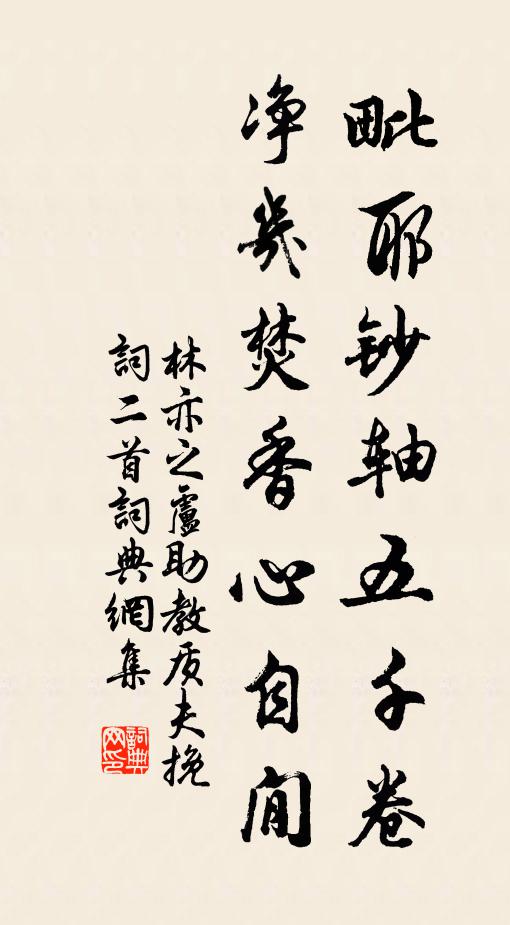 毗耶鈔軸五千卷
净几焚香心自间
林亦之盧助教质夫挽
詞二首詞典網集
詞典網印